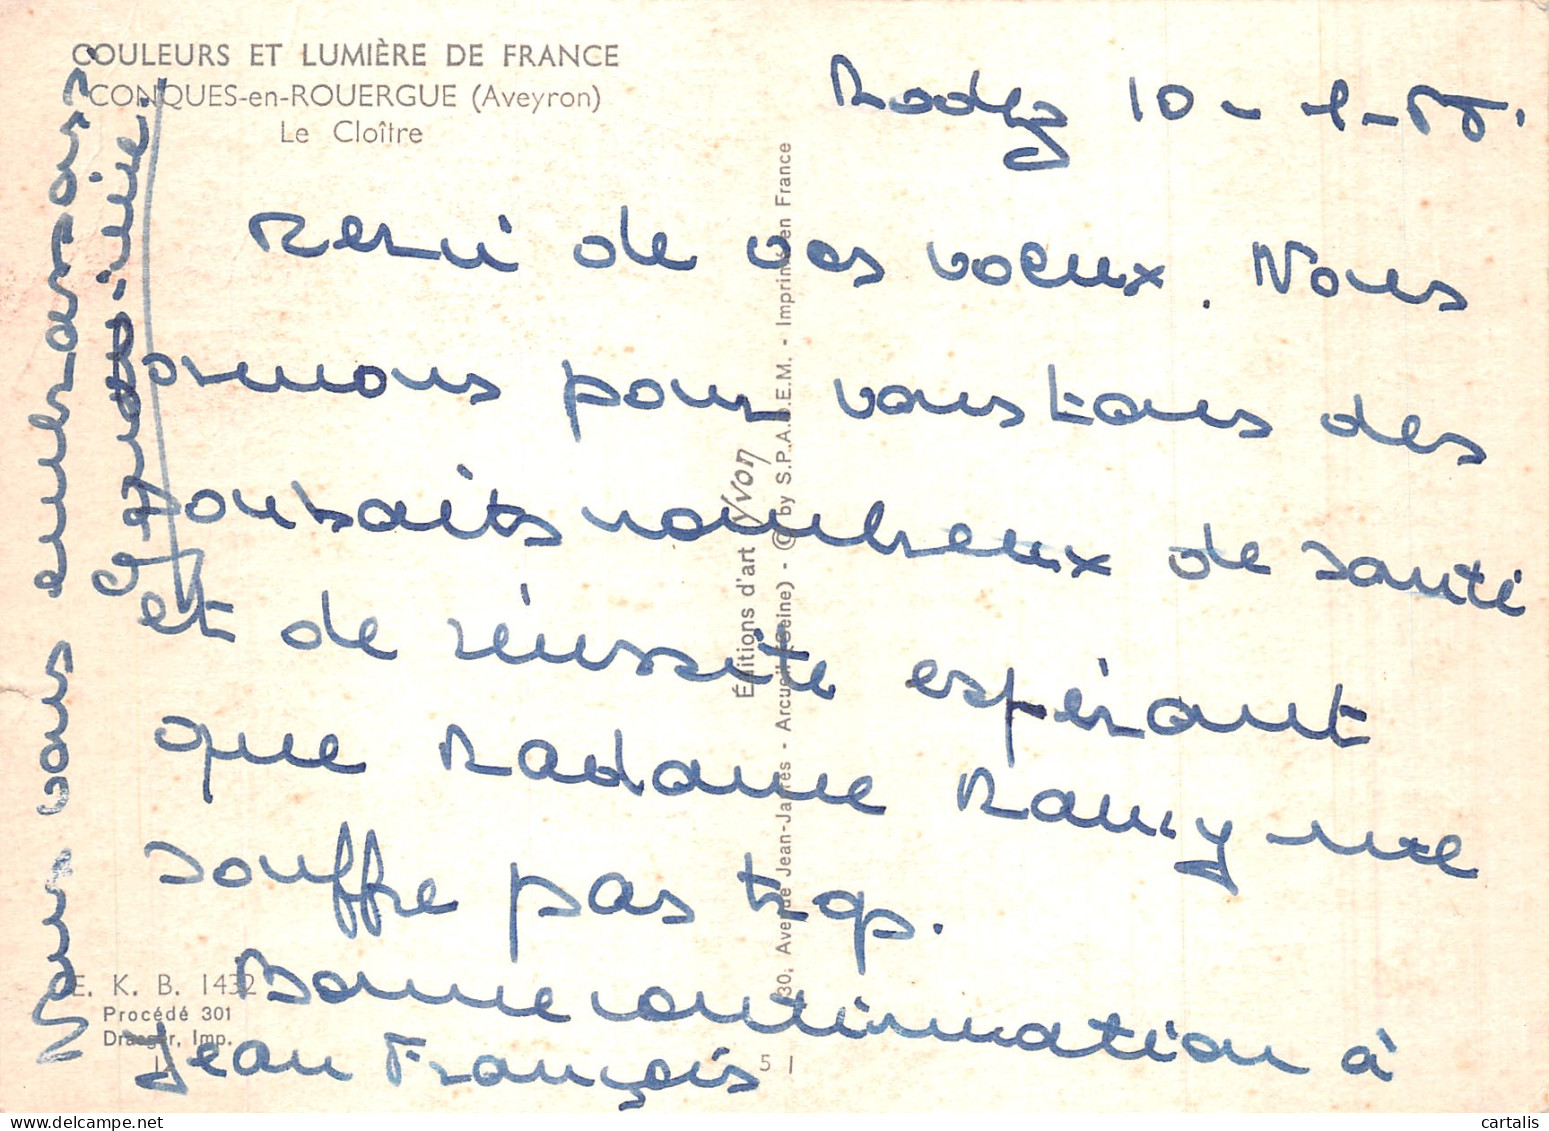 COULEURS ET LUMIÈRE DE FRANCE
CONQUES-en-ROUERGUE (Aveyron)
Le Cloître
Rodez 10 - 1 -
Merci de vos voeux. Nous
formons pour vous tous des
souhaits nombreux de santé
et de réussite espérant
que Madame ne
souffre pas trop.
Bonne continuation à
Jean François
vous embrassons
Éditions d'art Yvon
30, Avenue Jean-Jaurès - Arcueil (Seine) - © by S.P.A.D.E.M. - Imprimé en France
E. K. B. 1432
Procédé 301
Draeger, Imp.
5 I
cartalis.com